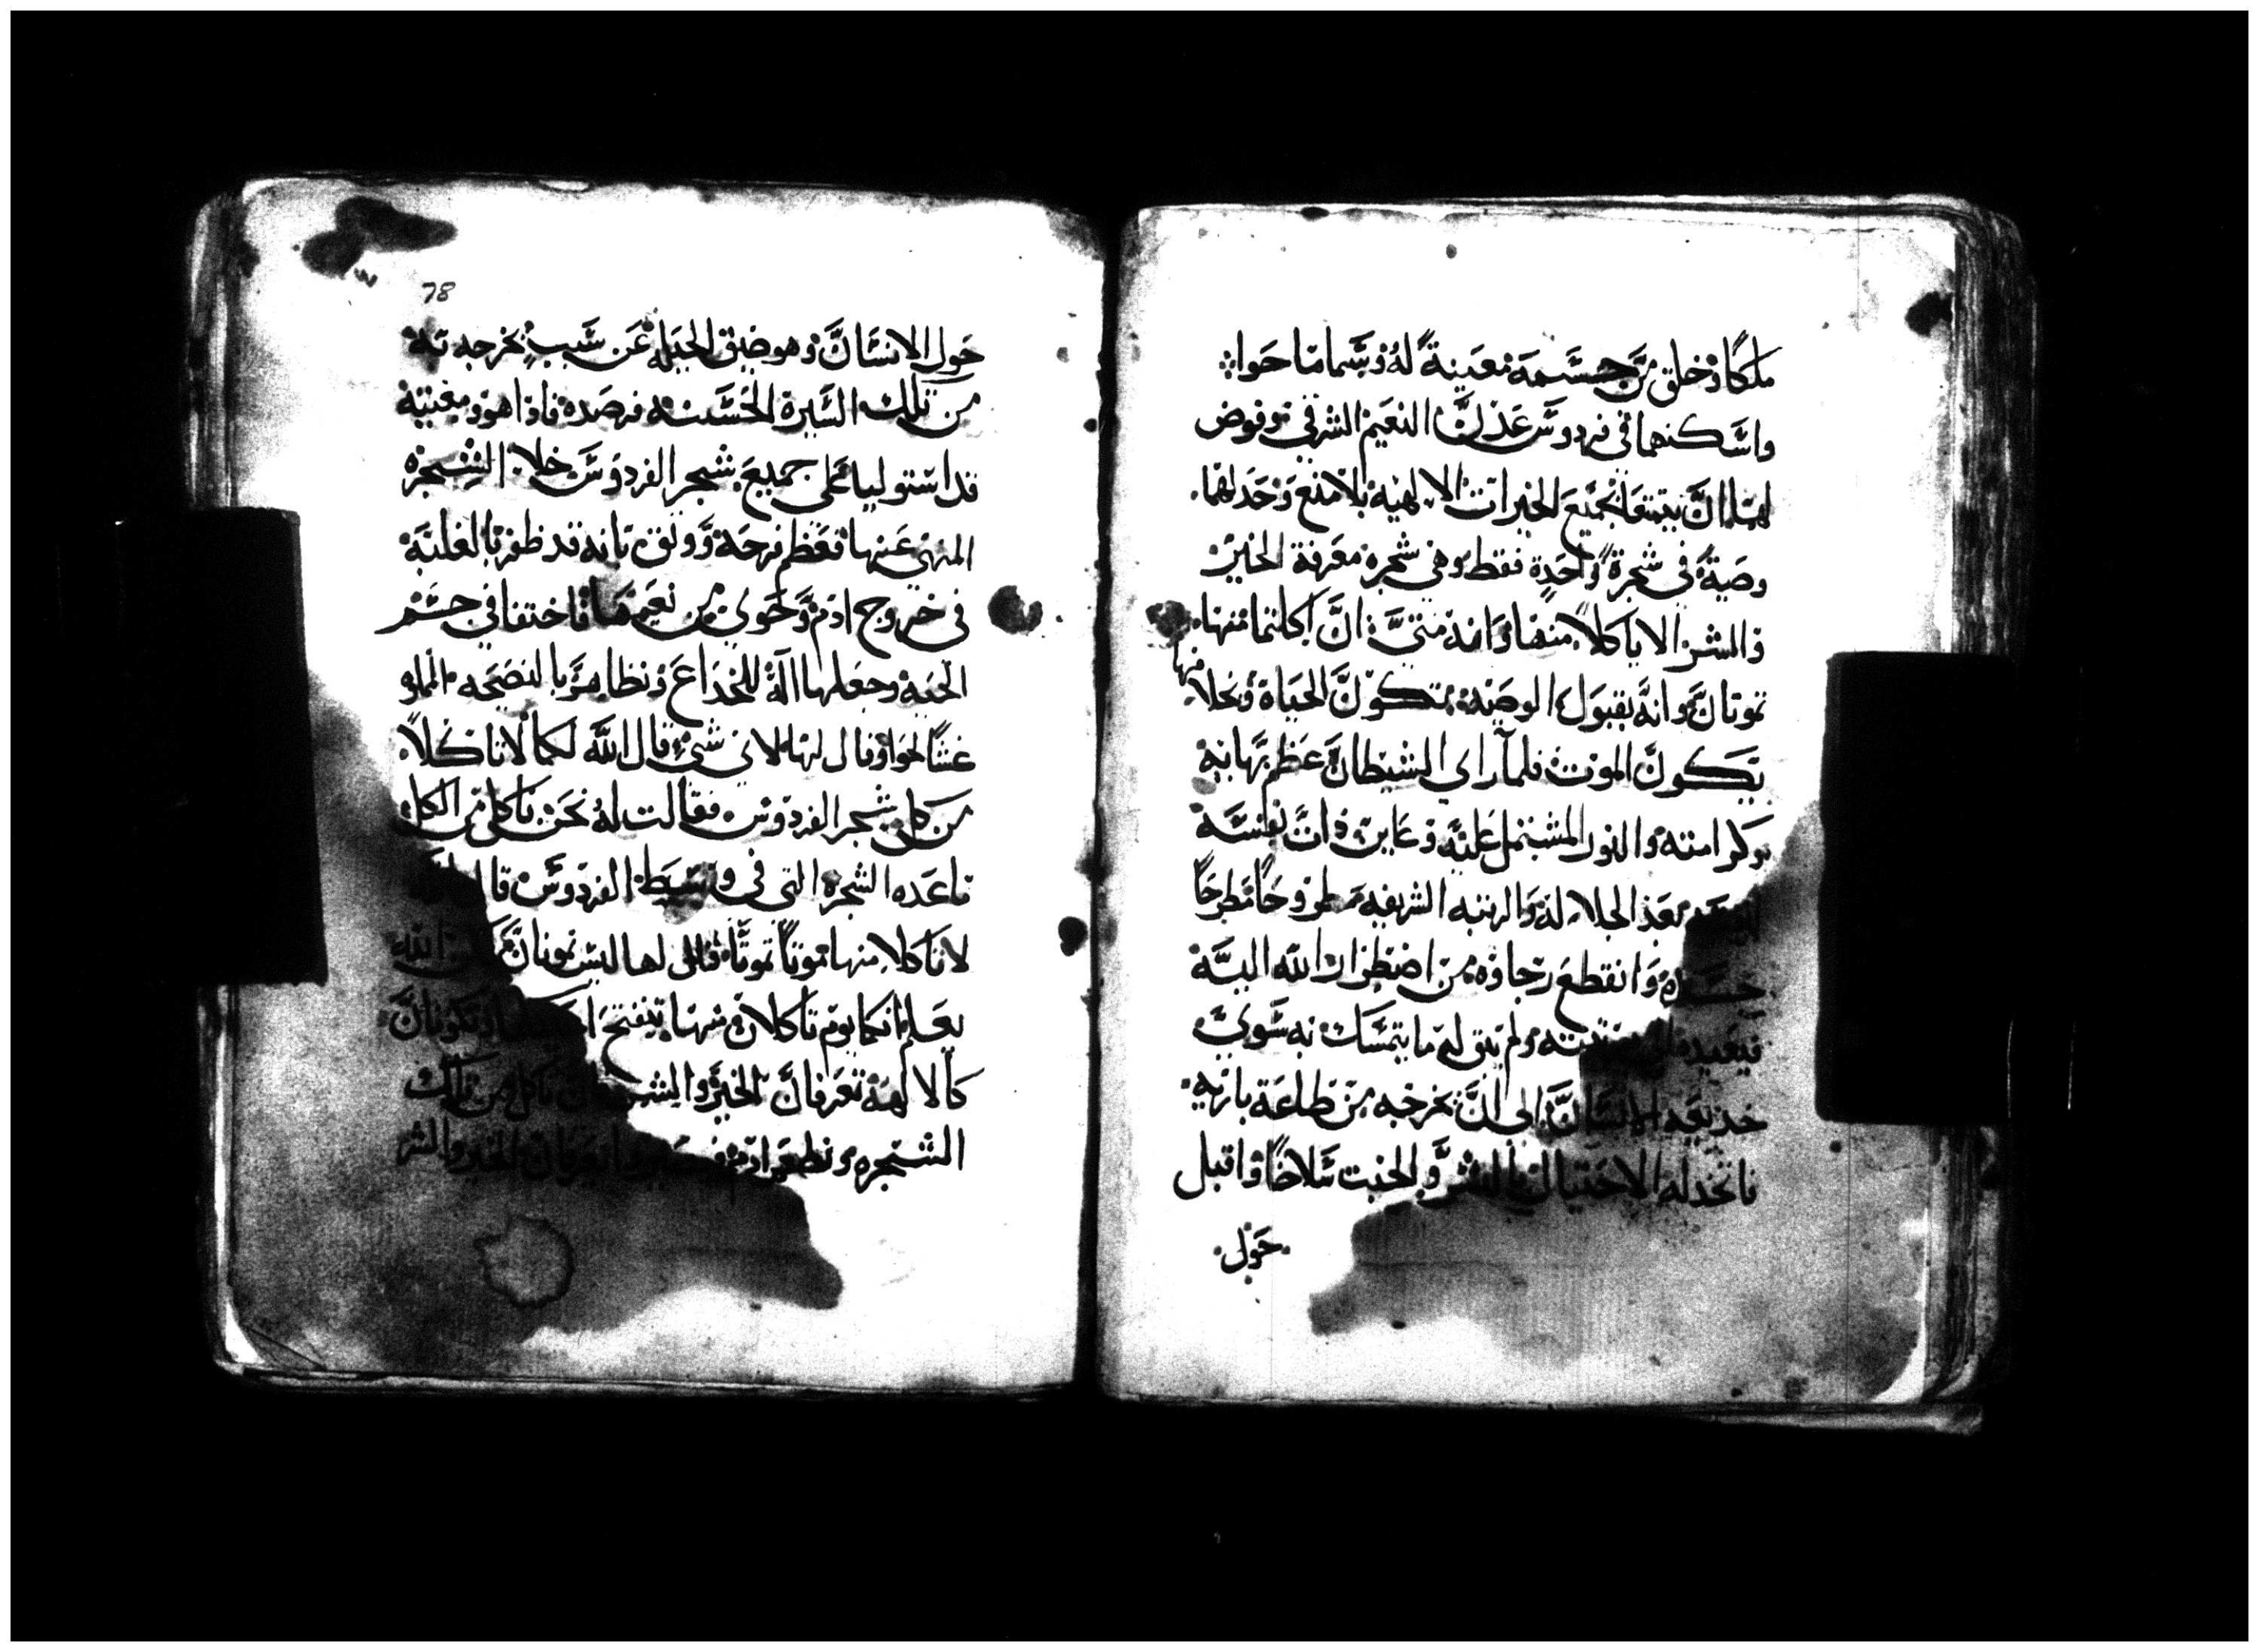 ملكًا وخلق من جسمه معينة له وسماها حوا
واسكنهما في فردوس عدن النعيم الشرقي وفوض
لهما ان يتمتعا بجميع الخيرات الالهية بلا منع وحد لهما
وصية في شجرة واحدة فقط وهي شجرة معرفة الخير
والشر الا ياكلا منها وانه متى ان اكلتما منها
تموتان وانه بقبول الوصية تكون الحياة وبخلافها
يكون الموت فلما راي الشيطان عظم بهايه
وكرامته والنور المشتمل عليه وعاين ذات نفسه
بعد الجلالة والرتبه الشريفه مطروحًا مطرحًا
وانقطع رجاوه من اضطرار الله اليه
ولم يبق له ما يتمسك به سوي
خديعه الانسان الى ان يخرجه من طاعة باريه
فاتخد له الاحتيال بالشر والخبت سلاحًا واقبل
حول
78
حول الانسان وهو ضيق الحيله عن سبب يخرجه به
من تلك السيرة الحسنه فرصده فاذا هو ومعينته
قد استوليا على جميع شجر الفردوس خلا الشجره
المنهي عنها فعظم فرحه ووثق بانه قد ظفر بالغلبة
في خروج ادم وحوي من نعيمها فاختفا في جسم
الحيه وجعلها الة للخداع وتظاهر بالنصيحه المملو
غشًا لحوا وقال لها لاي شي قال الله لكما لا تاكلا
من كل شجر الفردوس فقالت له نحن ناكل من الكل
ماعده الشجره التي في وسط الفردوس قال
لا تاكلا منها تموتا تموتا قال لها ليس تموتان الله
يعلم انكما يوم تاكلان منها تنفتح وتكونان
كالالهة تعرفان الخير والشر تاكل من تلك
الشجره وتطعم ادم تعرفان الخير والشر